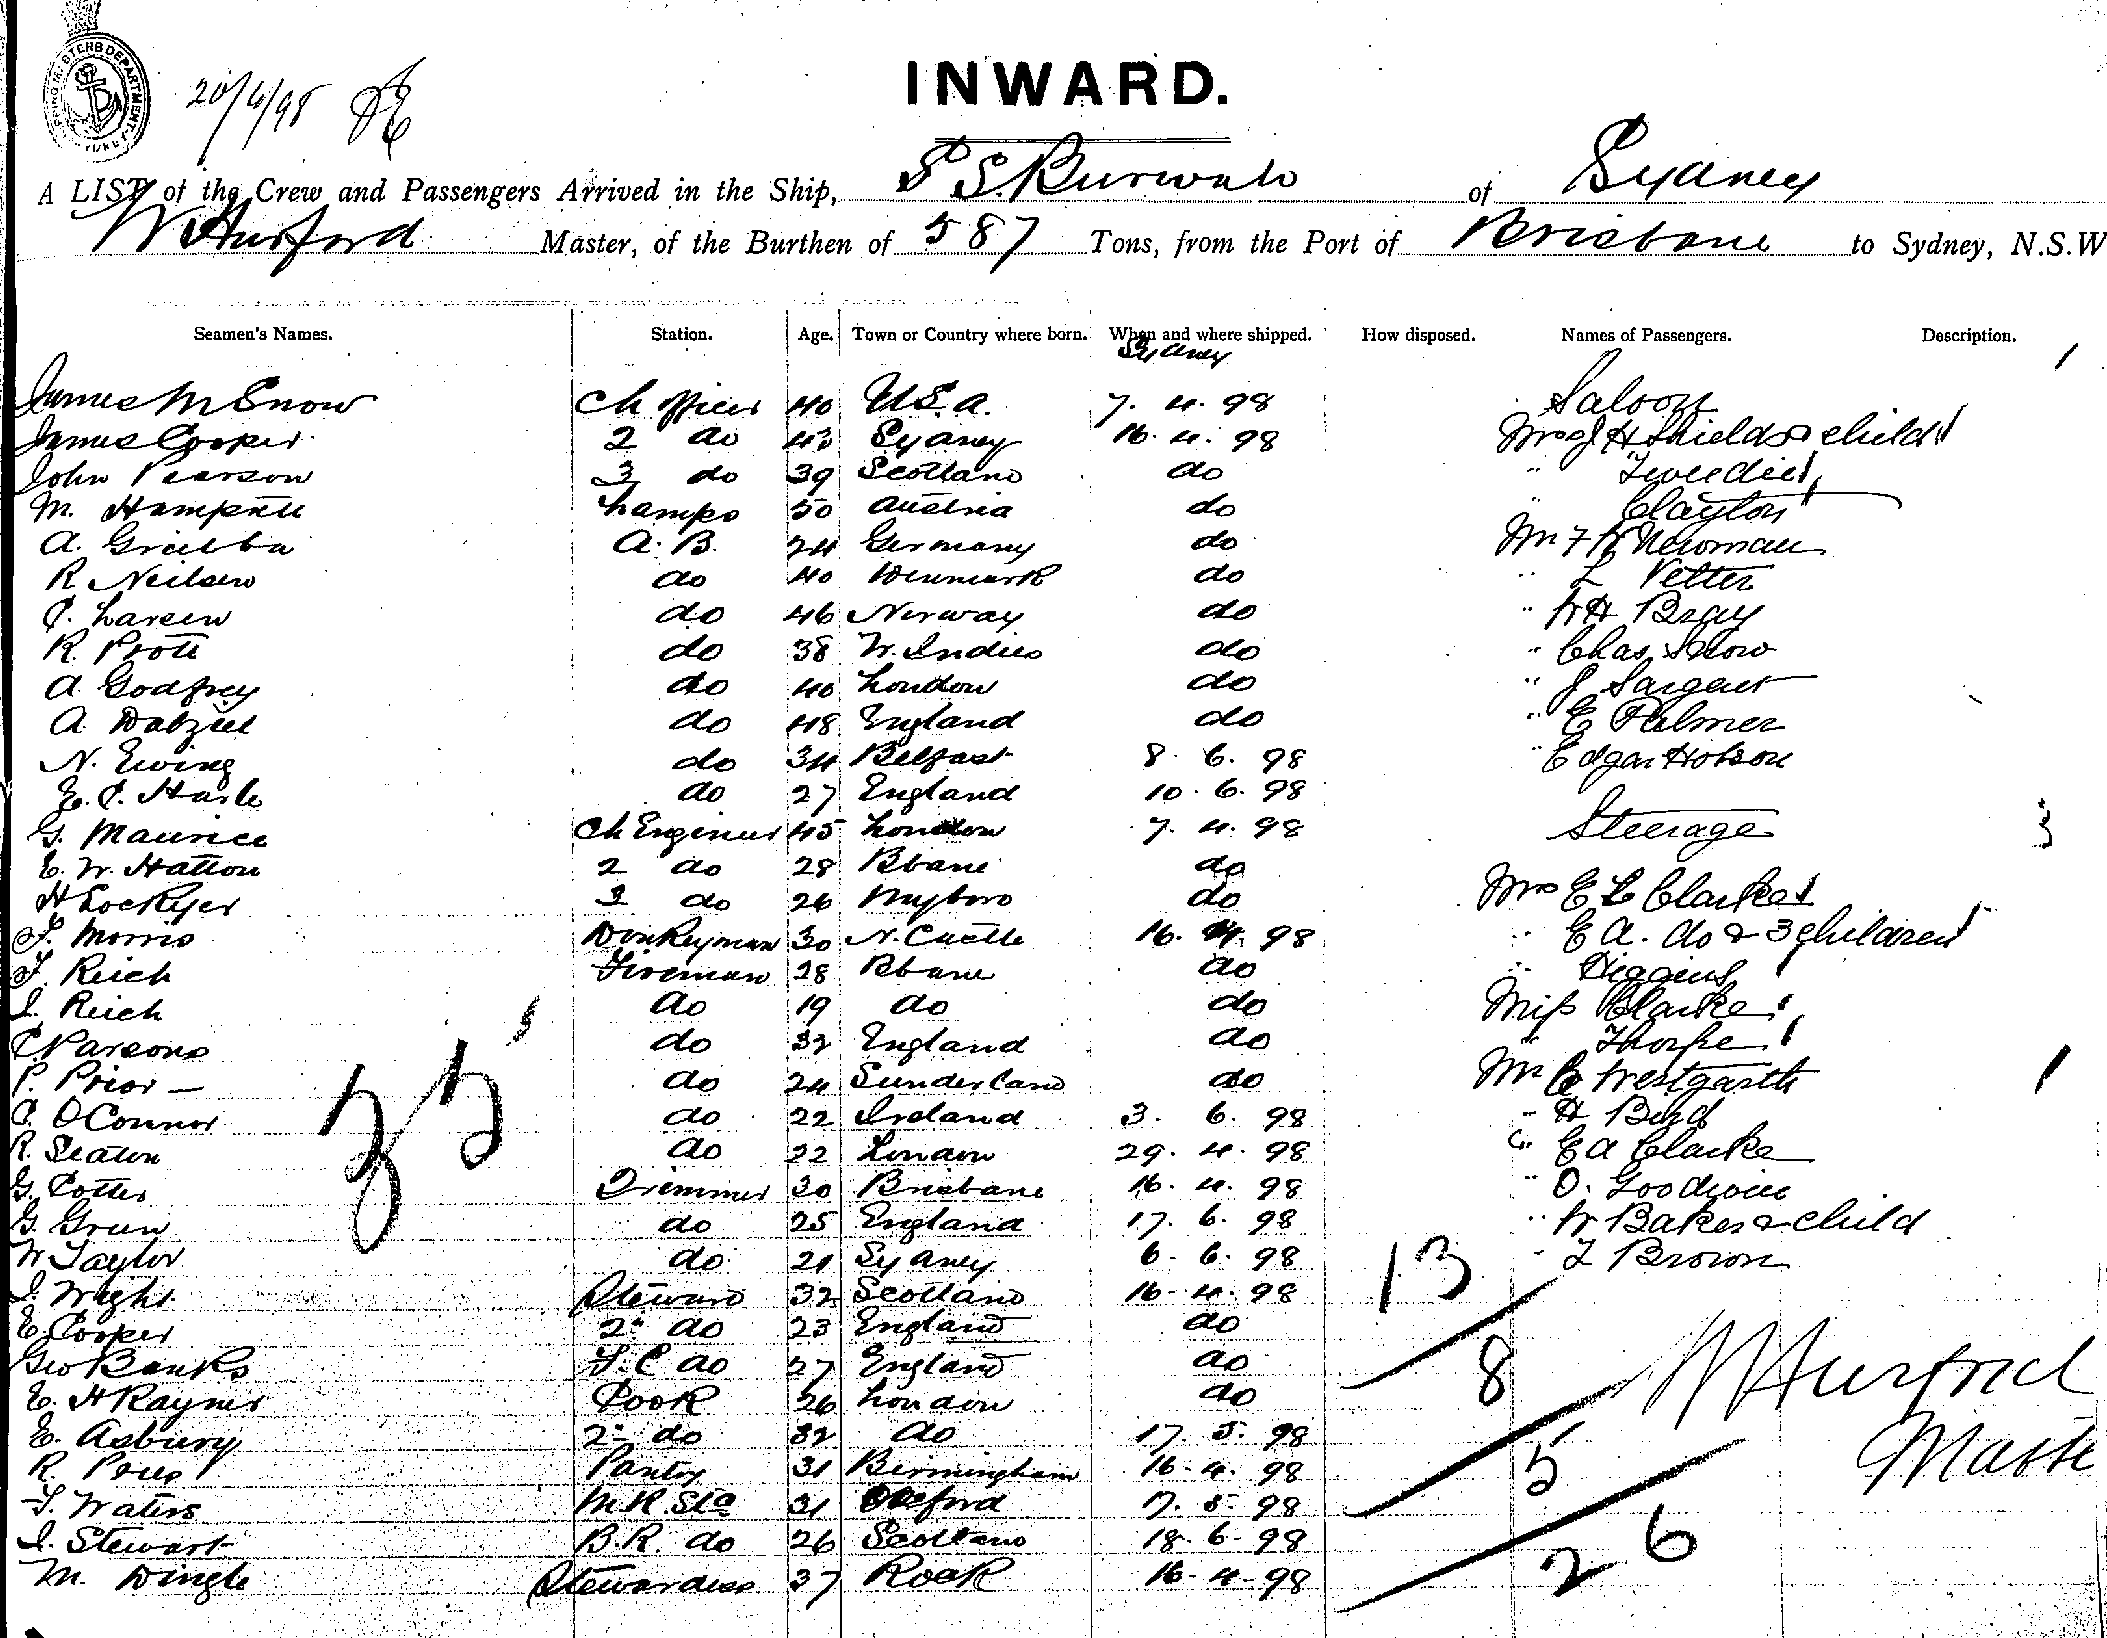 20/6/98
INWARD.
A LIST of the Crew and Passengers Arrived in the Ship, S S. Burwah of Sydney
W Hurford Master, of the Burthen of 587 Tons, from the Port of Brisbane to Sydney, N.S.W
Seamen's Names. Station. Age. Town or Country where born. When and where shipped. How disposed. Names of Passengers. Description.
Sydney
James M Snow Ch Officer 40 U.S.A. 7. 4. 98 Saloon
James Cooper 2 do 43 Sydney 16. 4. 98 Mrs J H Shields & child
John Pearson 3 do 39 Scotland do " Tweedie
M. Lamps 50 Austria do " Clayton
A. A. B. 24 Germany do Mr F W Newman
R Neilsen do 40 Denmark do " L Vetter
C. Larsen do 46 Norway do " W H Bray
R. Prott do 38 W. Indies do " Chas Snow
A Godfrey do 40 London do " J Sargent
A. Dalziel do 48 England do " E Palmer
N. Ewing do 34 Belfast 8. 6. 98 " Edgar Hobson
E. C. Harle do 27 England 10. 6. 98
G. Maurice Ch Engineer 45 London 7. 4. 98 Steerage 3
E. W. Hatton 2 do 28 Bbane do
H Lockyer 3 do 26 Myboro do Mrs E L Clarke
J. Morris Donkeyman 30 N. Castle 16. 4. 98 " E A. do & 3 children
J. Reich Fireman 28 Bbane do " Higgins
I. Reich do 19 do do Miss Clarke
C Parsons do 32 England do " Thorpe
P. Prior — do 24 Sunderland do Mr C Westgarth
C. O'Connor do 22 Ireland 3. 6. 98 " H Bird
R. Seaton do 22 London 29. 4. 98 " E A Clarke
G. Cotter Trimmer 30 Brisbane 16. 4. 98 " O. Goodwin
G. Grun do 25 England 17. 6. 98 " W Baker & child
W Taylor do 21 Sydney 6. 6. 98 " J Brown
I. Wright Steward 32 Scotland 16. 4. 98 13
E. Cooper 2" do 23 England do
Geo Banks F. C do 27 England do 8 W Hurford
E. H Rayner Cook 26 London do
E. Asbury 2" do 32 do 17. 5. 98 Master
R. Price Pantry 31 Birmingham 16. 4. 98 5
T. Waters M. R. Std 31 Oxford 7. 5. 98
I. Stewart B. R. do 26 Scotland 18. 6. 98 26
M. Dingle Stewardess 37 Rock 16. 4. 98